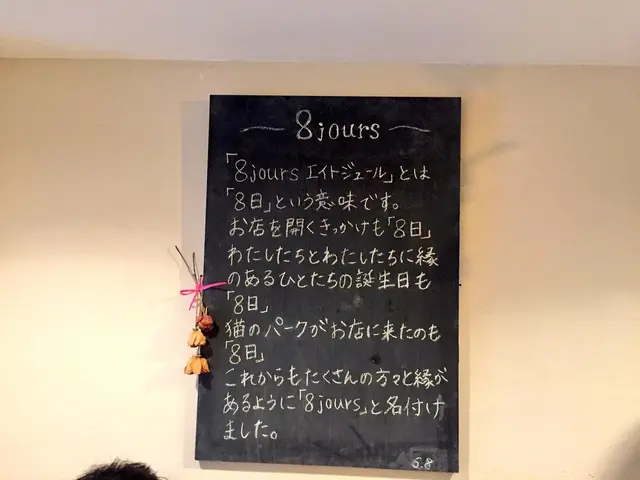 8jours
「8jours エイトジュール」とは
「8日」という意味です。
お店を開くきっかけも「8日」
わたしたちとわたしたちに縁
のあるひとたちの誕生日も
「8日」
猫のパークがお店に来たのも
「8日」
これからもたくさんの方々と縁が
あるように「8jours」と名付け
ました。
5.8